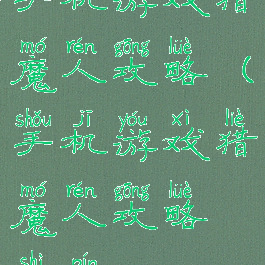 手机游戏猎
mó rén gōng lüè
魔人攻略(
shǒu jī yóu xì liè
手机游戏猎
mó rén gōng lüè
魔人攻略
shì pín